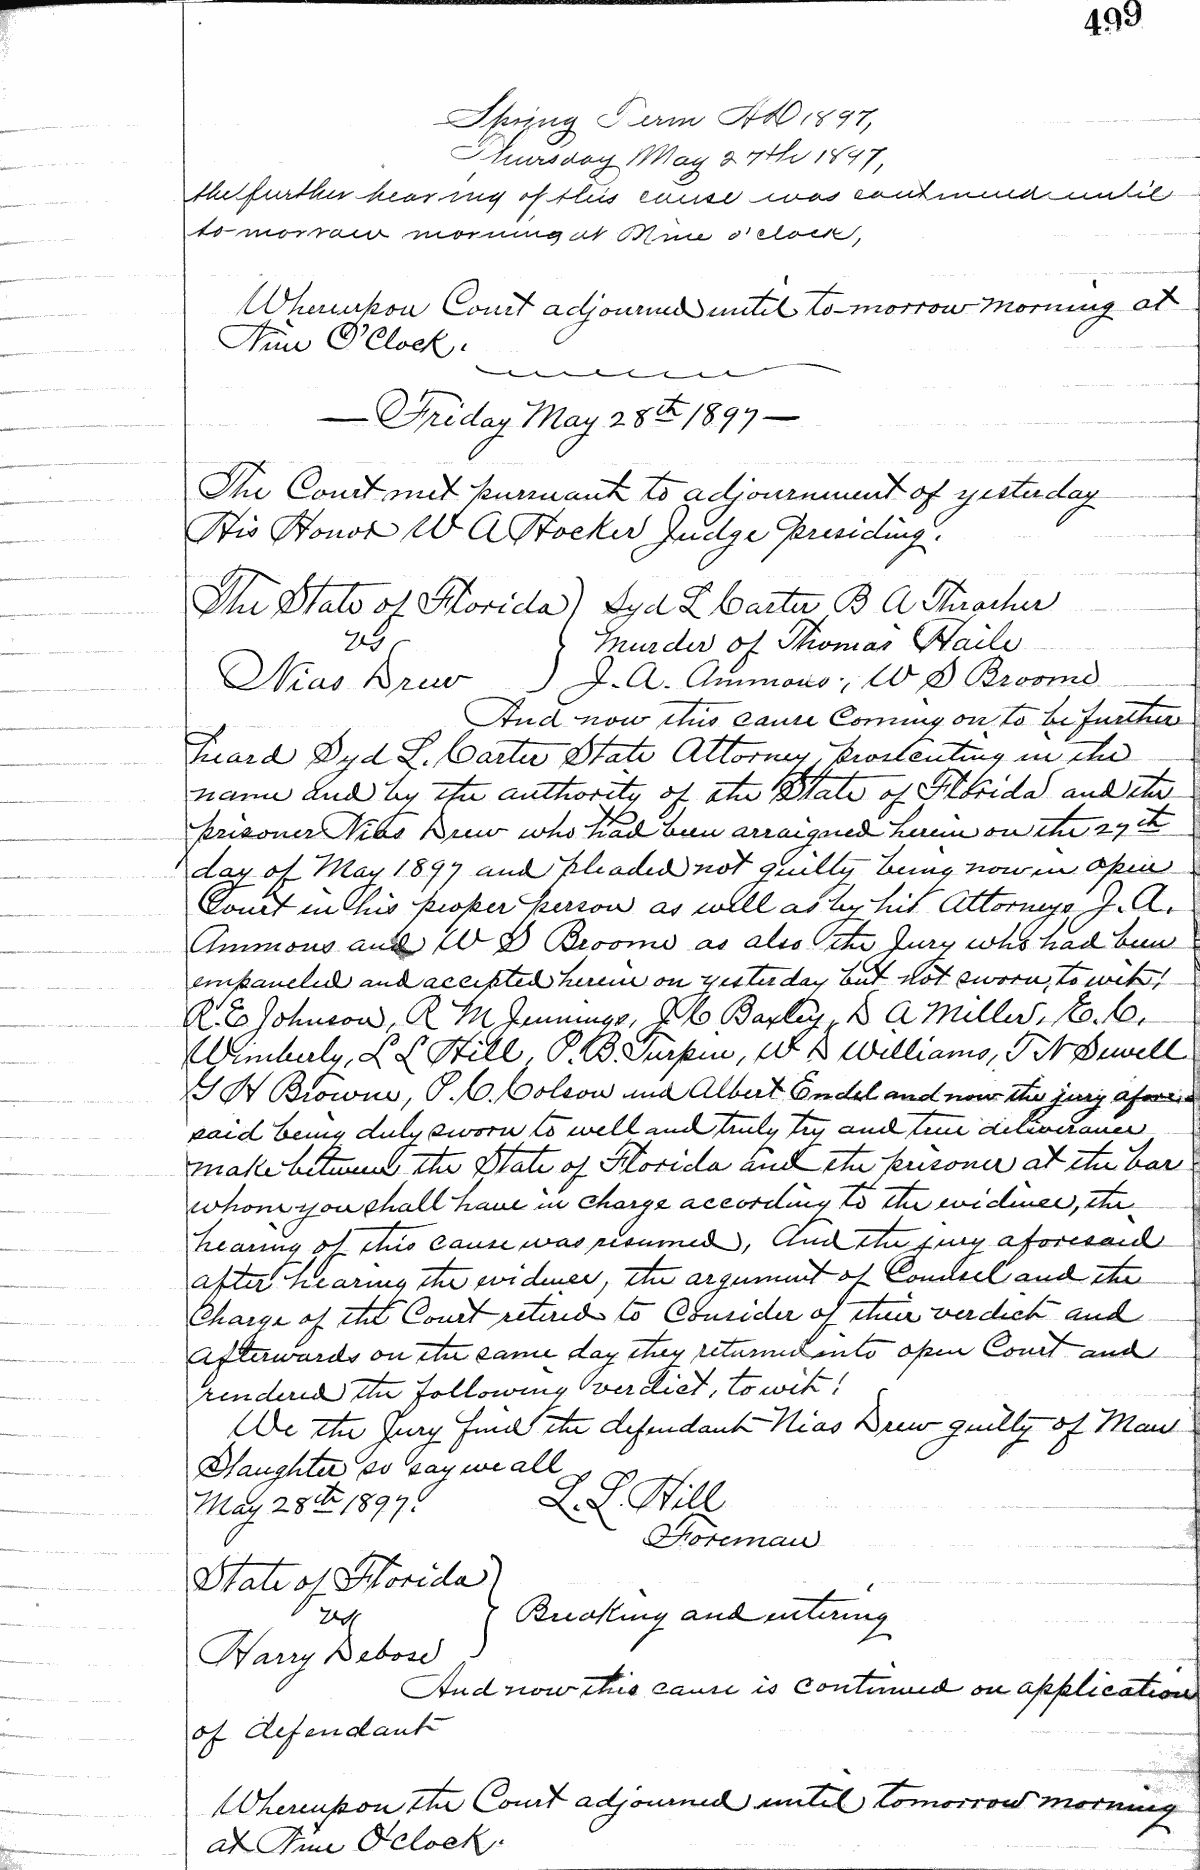 499
Spring Term AD 1897,
Thursday May 27th 1897,
the further hearing of this cause was continued until
to morrow morning at Nine o'clock,
Whereupon Court adjourned until to-morrow morning at
Nine O'Clock.
— Friday May 28th 1897 —
The Court met pursuant to adjournment of yesterday
His Honor W A Hocker Judge presiding.
The State of Florida ) Syd L Carter B A Thrasher
vs } Murder of Thomas Haile
Nias Drew ) J. A. Ammons, W S Broome
And now this cause Coming on to be further
heard Syd L. Carter State Attorney, prosecuting in the
name and by the authority of the State of Florida and the
prisoner Nias Drew who had been arraigned herein on the 27th
day of May 1897 and pleaded not guilty being now in open
Court in his proper person as well as by his Attorneys, J. A.
Ammons and W S Broome as also the Jury who had been
empaneled and accepted herein on yesterday but not sworn, to wit!
R. E Johnson, R M Jennings, J C Baxley, D A Miller, E. C.
Wimberly, L L Hill, P. B. Turpin, W D Williams, T N Sewell
G H Browne, P. C. Colson and Albert Endel and now the jury afore
said being duly sworn to well and truly try and true deliverance
make between the State of Florida and the prisoner at the bar
whom you shall have in charge according to the evidence, the
hearing of this cause was resumed, And the jury aforesaid
after hearing the evidence, the argument of Counsel and the
Charge of the Court retired to Consider of their verdict and
afterwards on the same day they returned into open Court and
rendered the following verdict, to wit!
We the Jury find the defendant Nias Drew guilty of Man
Slaughter so say we all
May 28th 1897. L. L. Hill
Foreman
State of Florida )
vs } Breaking and entering
Harry Debose )
And now this cause is continued on application
of defendant
Whereupon the Court adjourned until tomorrow morning
at Nine O'clock.